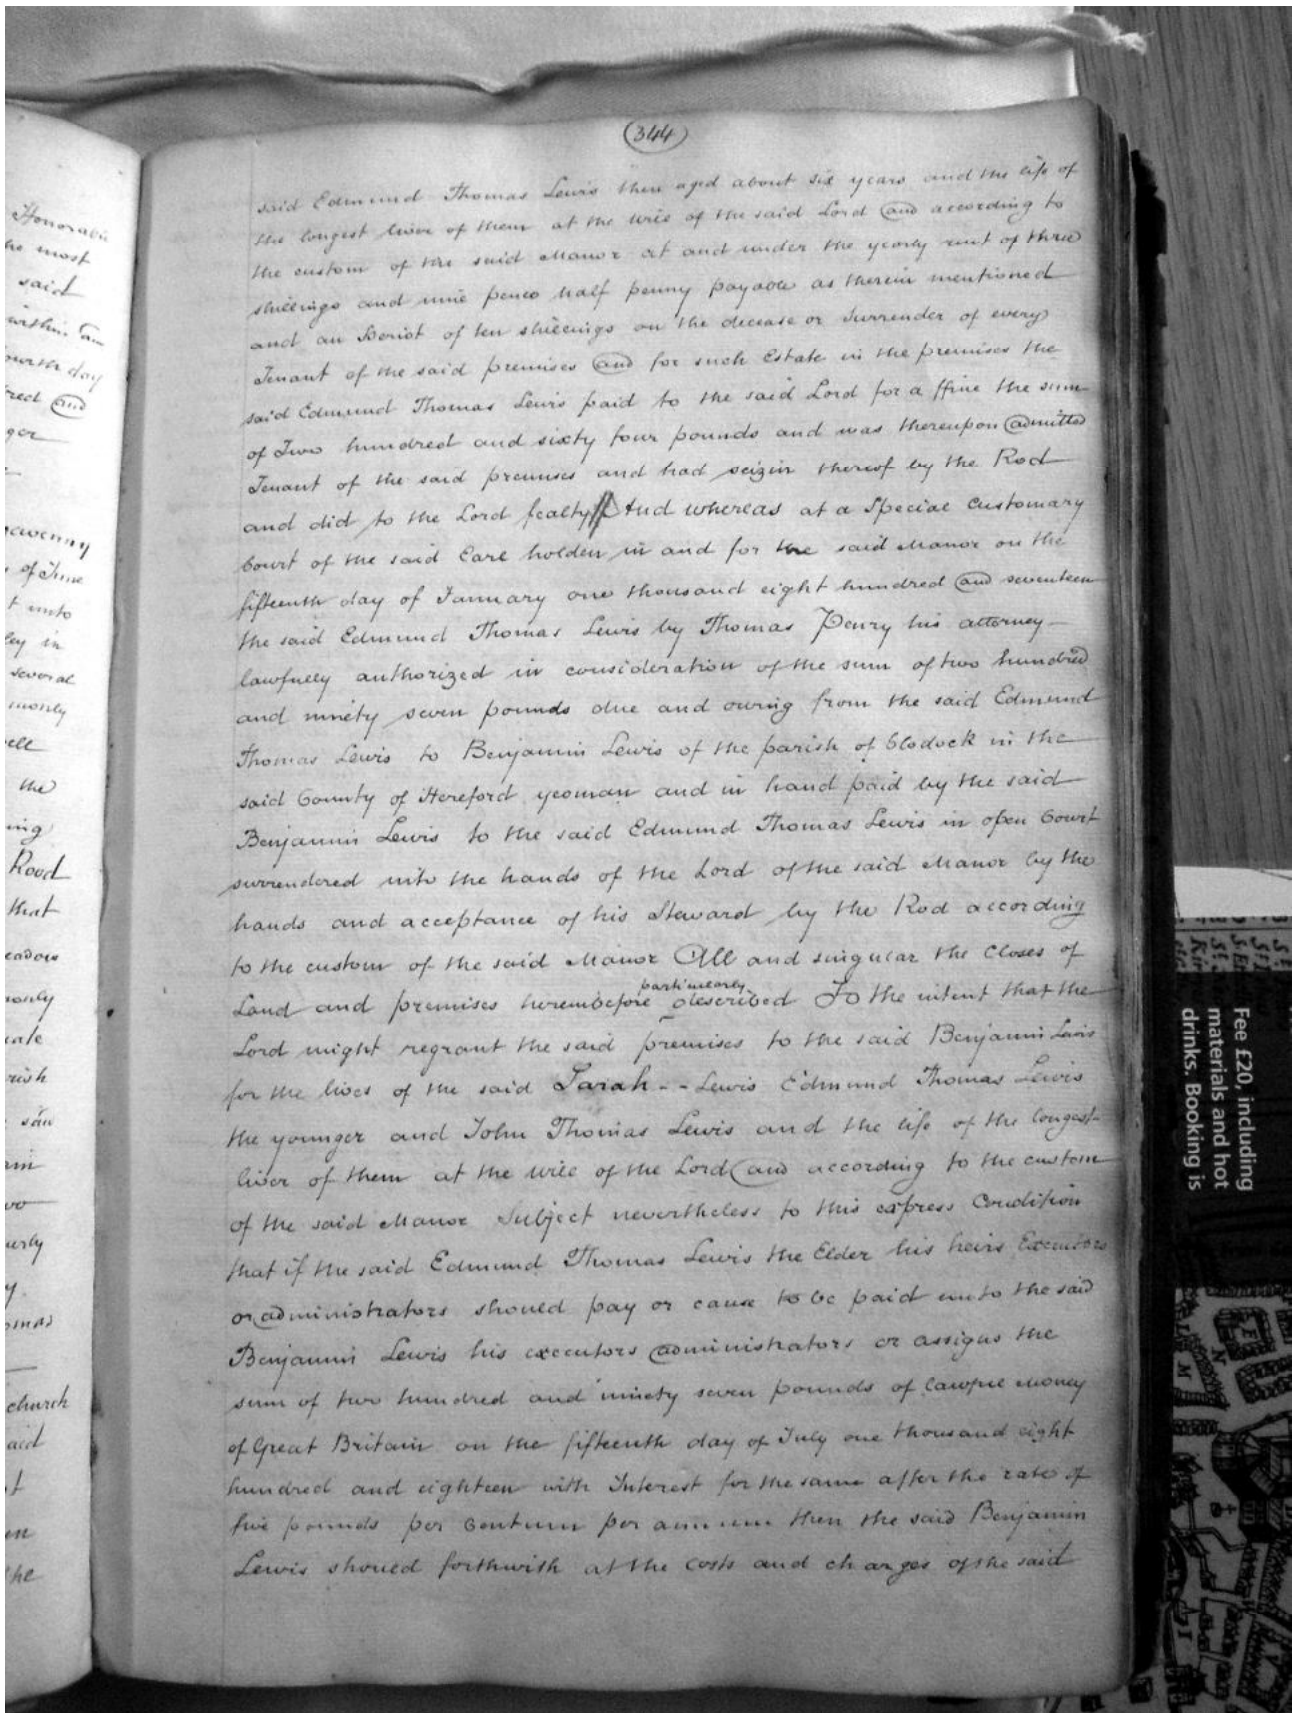 344
said Edmund Thomas Lewis then aged about six years and the life of
the longest liver of them at the will of the said Lord and according to
the custom of the said Manor at and under the yearly rent of three
shillings and nine pence half penny payable as therein mentioned
and an Heriot of ten shillings on the decease or surrender of every
Tenant of the said premises and for such Estate in the premises the
said Edmund Thomas Lewis paid to the said Lord for a ffine the sum
of Two hundred and sixty four pounds and was thereupon admitted
Tenant of the said premises and had seizin thereof by the Rod
and did to the Lord fealty // And whereas at a Special Customary
Court of the said Earl holden in and for the said Manor on the
fifteenth day of January one thousand eight hundred and seventeen
the said Edmund Thomas Lewis by Thomas Penry his attorney
lawfully authorized in consideration of the sum of two hundred
and ninety seven pounds due and owing from the said Edmund
Thomas Lewis to Benjamin Lewis of the parish of Clodock in the
said County of Hereford yeoman and in hand paid by the said
Benjamin Lewis to the said Edmund Thomas Lewis in open Court
surrendered into the hands of the Lord of the said Manor by the
hands and acceptance of his Steward by the Rod according
to the custom of the said Manor All and singular the Closes of
particularly
Land and premises hereinbefore described To the intent that the
Lord might regrant the said premises to the said Benjamin Lewis
for the lives of the said Sarah - - Lewis Edmund Thomas Lewis
the younger and John Thomas Lewis and the life of the longest
liver of them at the will of the Lord and according to the custom
of the said Manor Subject nevertheless to this express Condition
that if the said Edmund Thomas Lewis the Elder his heirs Executors
or administrators should pay or cause to be paid unto the said
Benjamin Lewis his executors administrators or assigns the
sum of two hundred and ninety seven pounds of lawful Money
of Great Britain on the fifteenth day of July one thousand eight
hundred and eighteen with Interest for the same after the rate of
five pounds per Centum per annum then the said Benjamin
Lewis should forthwith at the costs and charges of the said
Honorable
most
said
within
fourth day
and
of June
unto
in
several
the
Rood
that
church
Fee £20, including
materials and hot
drinks. Booking is